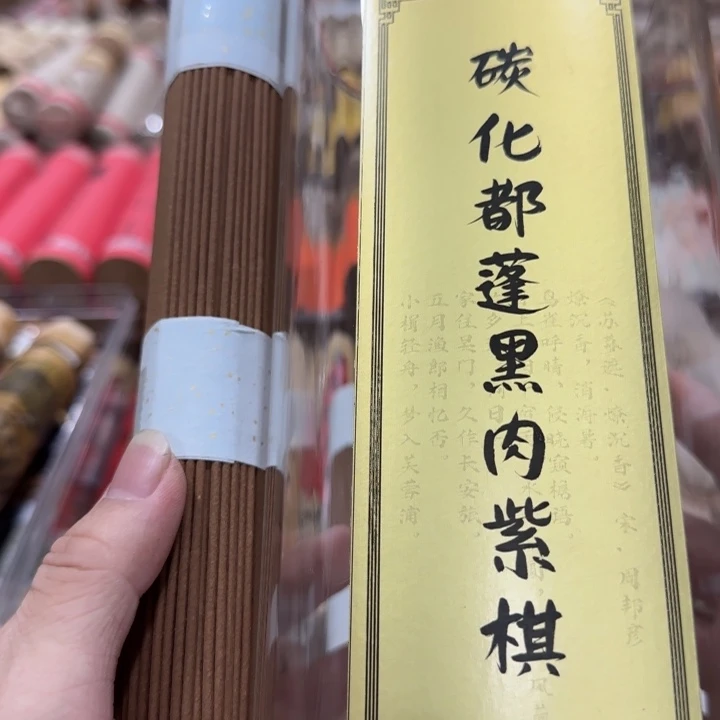 碳化都蓬黑肉紫棋
《苏幕遮·燎沉香》 宋·周邦彦
燎沉香,消溽暑。
鸟雀呼晴,侵晓窥檐语。
家住吴门,久作长安旅。
五月渔郎相忆否。
小楫轻舟,梦入芙蓉浦。